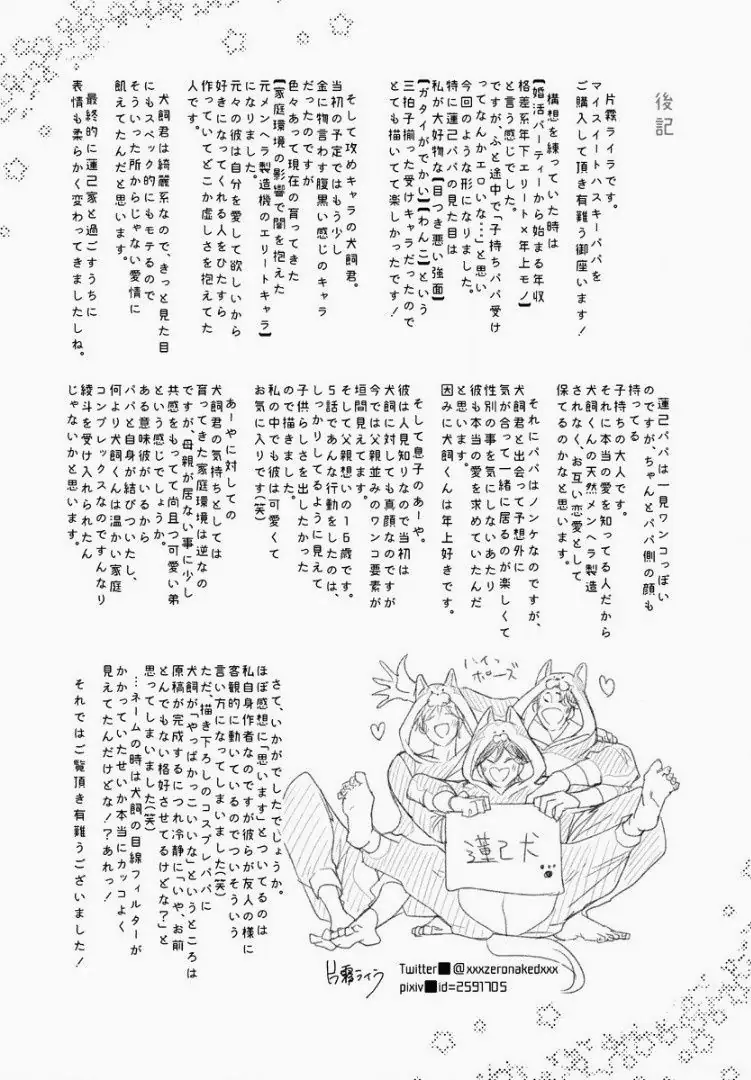 後記
片霧ライラです。
マイスイートハスキーパパを
ご購入して頂き有難う御座います!
構想を練っていた時は
【婚活パーティーから始まる年収
格差系年下エリート×年上モノ】
と言う感じでした。
ですが、ふと途中で「子持ちパパ受け
ってなんかエロいな…」と思い
今回のような形になりました。
特に蓮己パパの見た目は
私が大好物な【目つき悪い強面】
【ガタイがでかい】【わんこ】という
三拍子揃った受けキャラだったので
とても描いてて楽しかったです!
そして攻めキャラの犬飼君。
当初の予定ではもう少し
金に物言わす腹黒い感じのキャラ
だったのですが
色々あって現在の
【家庭環境の影響で闇を抱えた
元メンヘラ製造機のエリートキャラ】
になりました。
元々の彼は自分を愛して欲しいから
好きになってくれる人をひたすら
作っていてどこか虚しさを抱えてた
人です。
犬飼君は綺麗系なので、きっと見た目
にもスペック的にもモテるので
そういった所からじゃない愛情に
飢えてたんだと思います。
最終的に蓮己家と過ごすうちに
表情も柔らかく変わってきましたしね。
蓮己パパは一見ワンコっぽい
のですが、ちゃんとパパ側の顔も
持ってる
子持ちの大人です。
それに本当の愛を知ってる人だから
犬飼くんの天然メンヘラ製造
されなく、お互い恋愛として
保てるのかなと思います。
それにパパはノンケなのですが、
犬飼君と出会って予想外に
気が合って一緒に居るのが楽しくて
性別の事を気にしないあたり
彼も本当の愛を求めていたんだ
と思います。
因みに犬飼くんは年上好きです。
そして息子のあーや。
彼は人見知りなので当初は
犬飼に対しても真顔なのですが
今では父親並みのワンコ要素が
垣間見えてます。
そして父親想いの16歳です。
5話であんな行動をしたのは、
しっかりしてるように見えて
子供らしさを出したかった
ので描きました。
私の中でも彼は可愛くて
お気に入りです(笑)
あーやに対しての
犬飼君の気持ちとしては
育ってきた家庭環境は逆なの
ですが、母親が居ない事に少し
共感をもってて尚且つ可愛い弟
という感じでしょうか。
ある意味彼がいるから
パパと自身が結びついたし、
何より犬飼くんは温かい家庭
コンプレックスなのですんなり
綾斗を受け入れられたん
じゃないかと思います。
さて、いかがでしたでしょうか。
ほぼ感想に「思います」とついてるのは
私自身作者なのですが彼らが友人の様に
客観的に動いているのでついそういう
言い方になってしまいました(笑)
ただ、描き下ろしのコスプレパパに
犬飼が「やっぱかっこいいな」というところは
原稿が完成するにつれ冷静に「いや、お前
とんでもない格好させてるけどな?」と
思ってしまいました(笑)
…ネームの時は犬飼の目線フィルターが
かかっていたせいか本当にカッコよく
見えてたんだけどな!?あれっ!
それではご覧頂き有難うございました!
ハイ、ポーズ
蓮己犬
片霧ライラ
Twitter■@xxxzeronakedxxx
pixiv■id=2591705